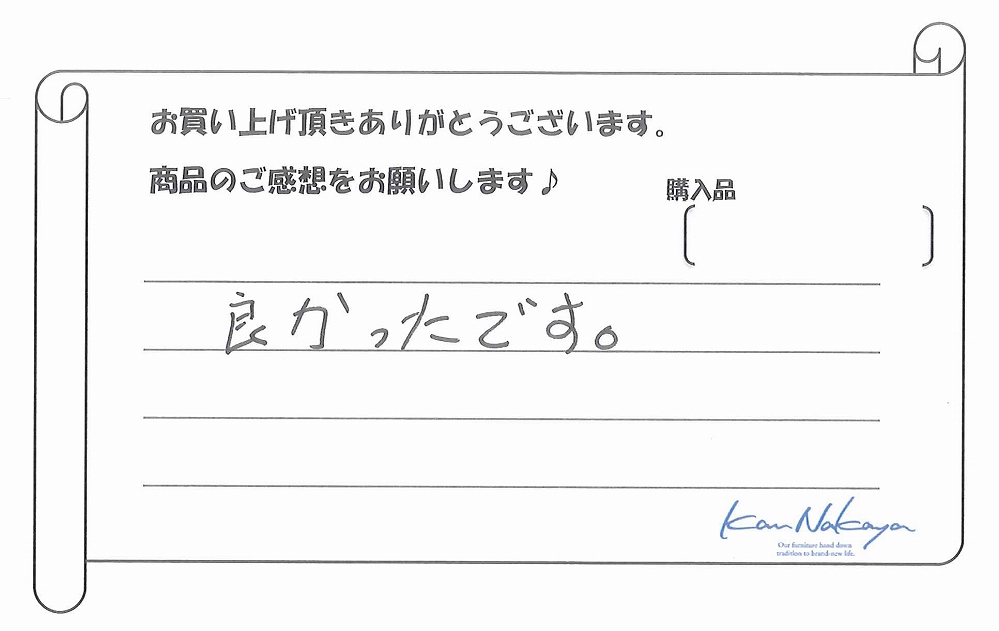 お買い上げ頂きありがとうございます。
商品のご感想をお願いします♪
購入品
良かったです。
Kan Nakaya
Our furniture hand down
tradition to brand-new life.